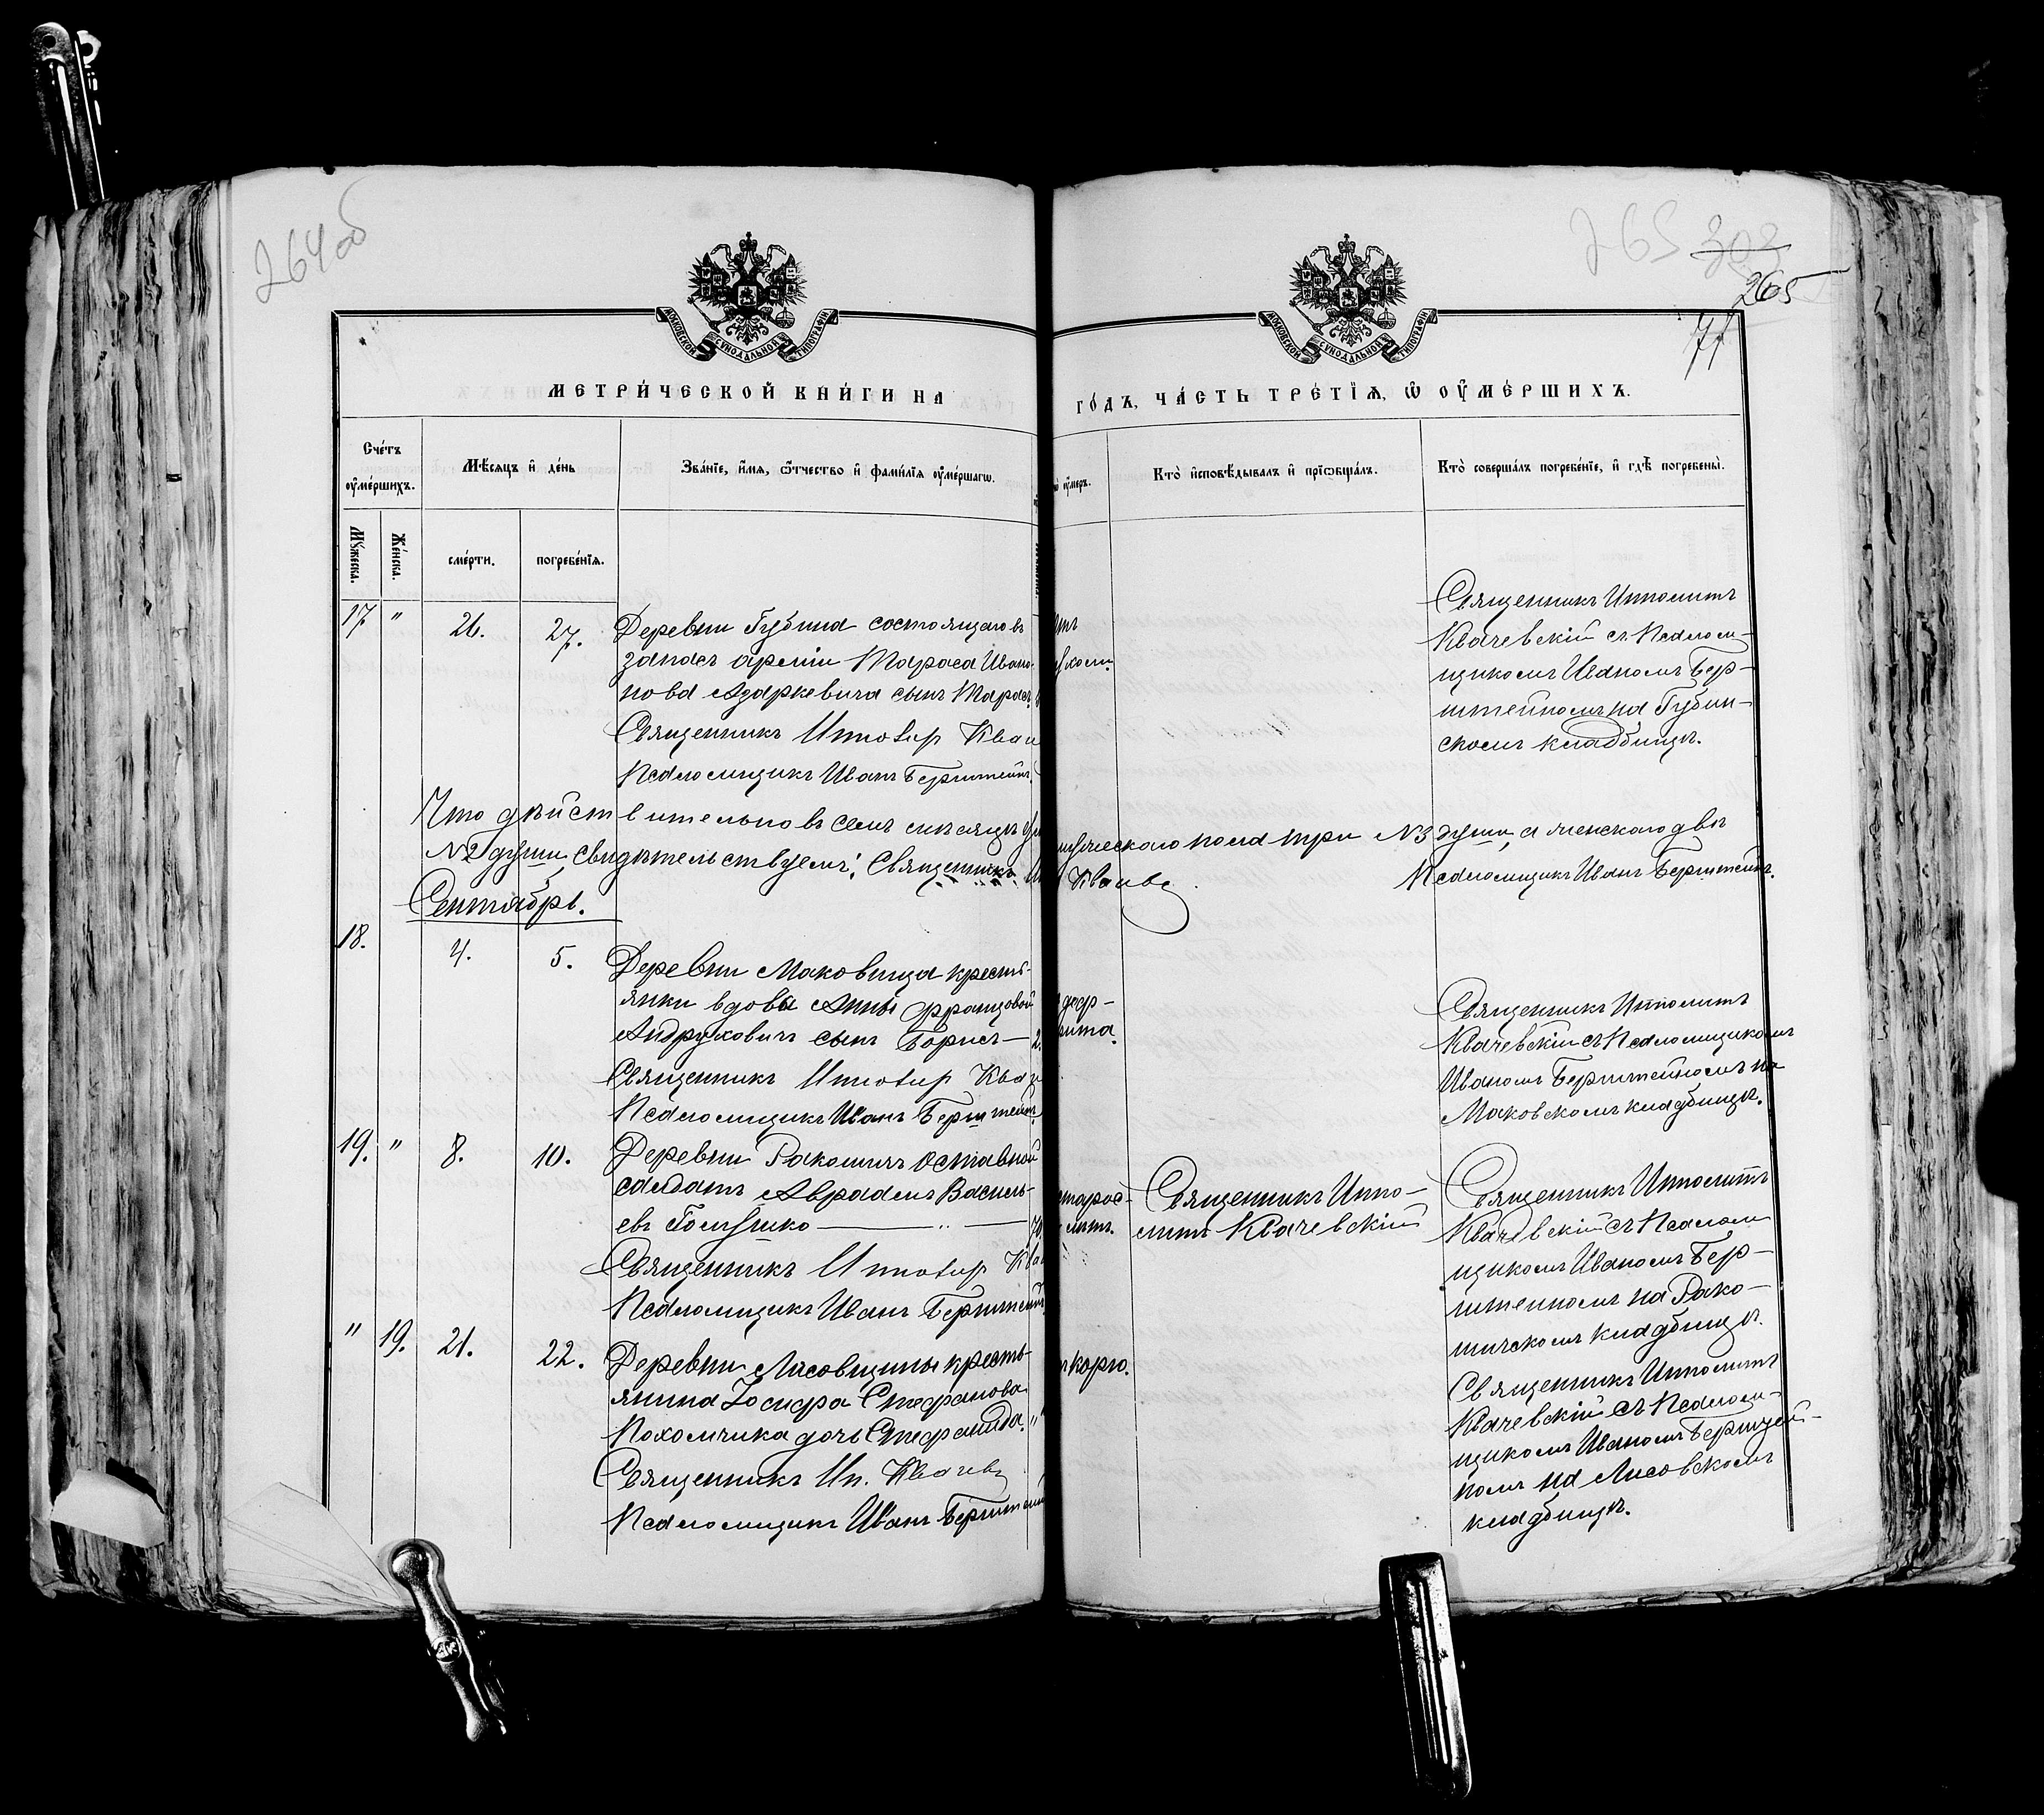 264 об
265 303
265
77
МОСКОВСКОЙ СѴНОДАЛЬНОЙ ТИПОГРАФІИ
МОСКОВСКОЙ СѴНОДАЛЬНОЙ ТИПОГРАФІИ
МЕТРИ́ЧЕСКОЙ КНИ́ГИ НА
ГО́ДЪ, ЧА́СТЬ ТРЕ́ТІЯ, Ѽ ОУМЕ́РШИХЪ.
Сче́тъ оуме́ршихъ.
Мѣ́сяцъ и де́нь
Зва́нїе, и́мя, ѻ́тчество и фами́лїя оуме́ршагѡ.
оумеръ.
Кто̀ исповѣ́дывалъ и прїѡбща́лъ.
Кто̀ соверша́лъ погребе́нїе, и гдѣ̀ погребены̀.
Му́жеска.
Же́нска.
сме́рти.
погребе́нїя.
17. " 26. 27.
Деревни Губина состоящаго въ
запасѣ арміи Тараса Ивано-
нова Азаркевича сынъ Тарасъ
Священникъ Ипполитъ
Псаломщикъ Иванъ Берштейнъ
Священникъ Ипполитъ
Квачевскій съ Псалом-
щикомъ Иваномъ Бер-
штейномъ на Губин-
скомъ кладбищѣ.
Что дѣйствительно въ семъ мѣсяцѣ мужескаго пола три №3 души, а женскаго двѣ
№2 души, свидѣтельствуемъ: Священникъ Псаломщикъ Иванъ Берштейнъ.
Сентябрь.
18. 4. 5.
Деревни Маковища кресть-
янки вдовы Анны Францовой
Андруховичъ сынъ Борисъ —
Священникъ Ипполитъ
Псаломщикъ Иванъ Берштейнъ
Священникъ Ипполитъ
Квачевскій съ Псаломщикомъ
Иваномъ Берштейномъ на
Маковскомъ кладбищѣ.
19. " 8. 10.
Деревни Ракошичъ оставной
салдатъ Авраамъ Василь-
евъ Голушко — " —
Священникъ Ипполитъ
Псаломщикъ Иванъ Берштейнъ
старос-
Священникъ Иппо-
литъ Квачевскій
Священникъ Ипполитъ
Квачевскій съ Псалом
щикомъ Иваномъ Бер-
штейномъ на Рако-
шичскомъ кладбищѣ.
" 19. 21. 22.
Деревни Лисовщины кресть-
янина Іосифа Стефанова
Похомчика дочь Стефанида. "
Священникъ Ип.
Псаломщикъ Иванъ Берштейнъ
корю.
Священникъ Ипполитъ
Квачевскій съ Псалом-
щикомъ Иваномъ Берштей-
номъ на Лисовскомъ
кладбищѣ.